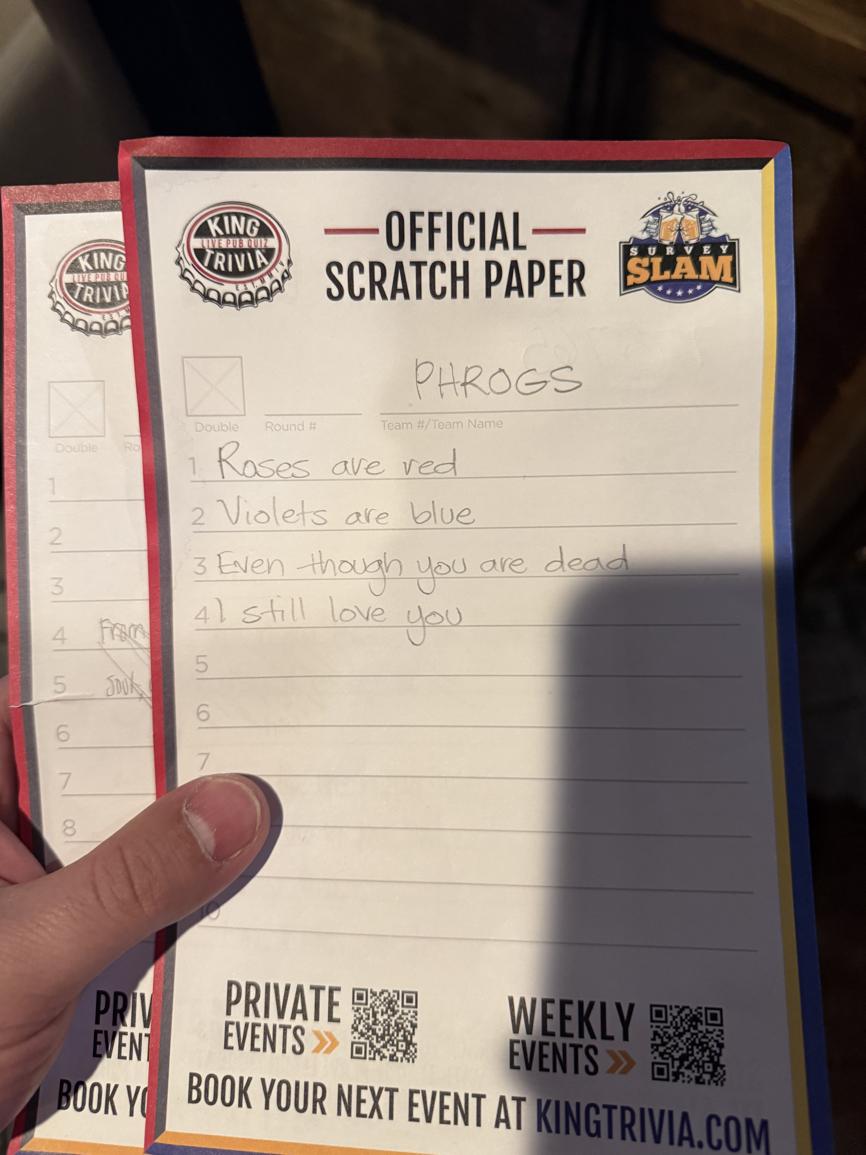 KING
LIVE PUB QUIZ
TRIVIA
OFFICIAL
SCRATCH PAPER
SURVEY
SLAM
PHROGS
Double
Round #
Team #/Team Name
1 Roses are red
2 Violets are blue
3 Even though you are dead
4 I still love you
5
6
7
10
PRIVATE
EVENTS »
WEEKLY
EVENTS »
BOOK YOUR NEXT EVENT AT KINGTRIVIA.COM
KING
LIVE PUB QU
TRIVIA
Double
Ro
1
2
3
4 From
5
6
7
8
PRIV
EVENT
BOOK YO